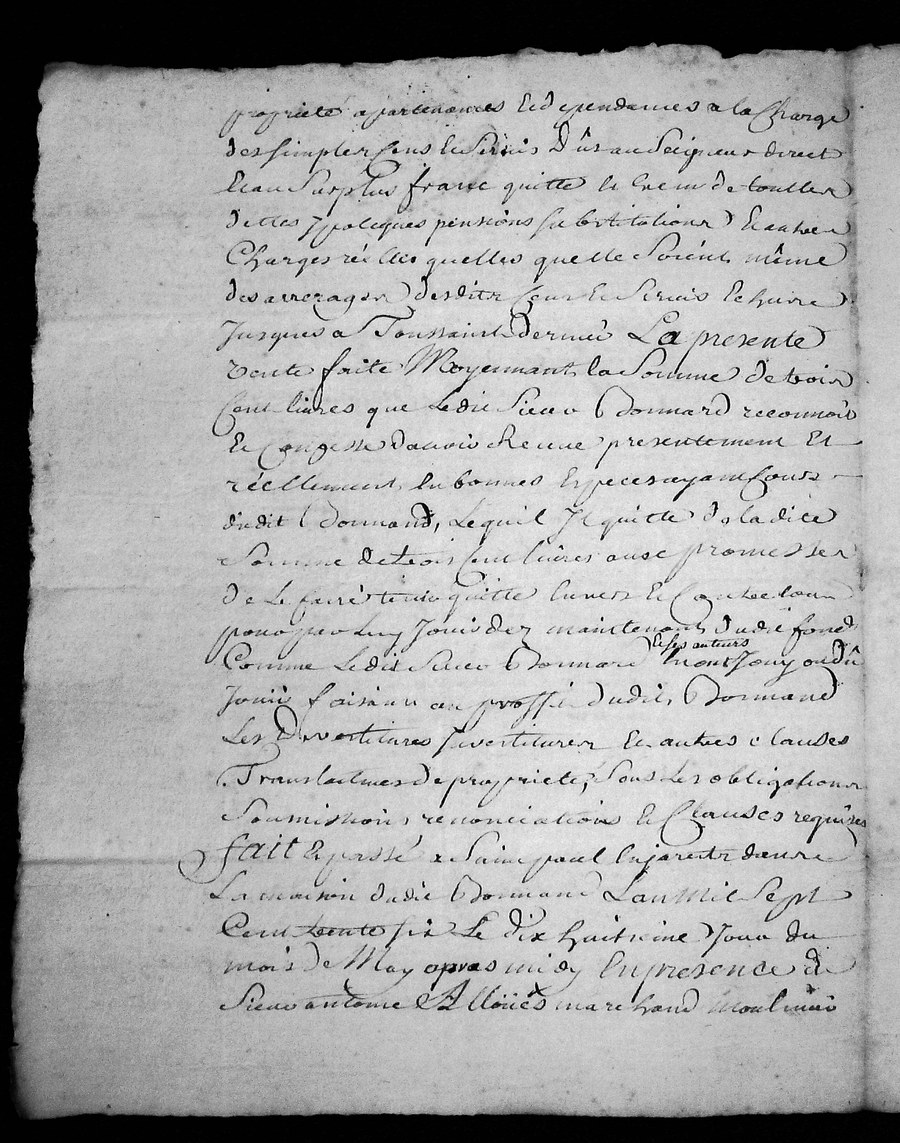 propriete apartenances et dependances a la Charge
des simples Cens et Servis Dûs au Seigneur direct
et au Surplus franc quitte et Exem de touttes
dettes ypoteques pensions substitutions Et autres
Charges réelles quelles quelle Soient même
des arrerages desdits Cens et Servis Echure
Jusques a Toussaint dernier La presente
vente faite Moyennant la Somme de trois
Cent livres que Ledit Sieur Bonnard reconnoit
Et Confesse davoir Receue presentement Et
réellement en bonnes Especes ayant Cours
dudit Bonnand, Lequil Il quitte de ladite
Somme de trois Cent livres avec promesses
de Le faire tenir quitte Envers Et Contre tous
pour par luy Jouir dez maintenant dudit fond
Comme Ledit Sieur Bonnard et ses auteurs en ont Jouy ou dû
Jouir faisant au proffit dudit Bonnand
Les Devestitures Investitures Et autres clauses
Translatives de propriete, Sous Les obligations
Soumissions renonciations Et Clauses requises
fait Et passé a Saint paul En jarests dans
La maison dudit Bonnand L'an Mil Sept
Cent trente six Le dix huitieme Jour du
mois de May apres midy En presence de
Sieur antoine Alloües marchand Moulinier